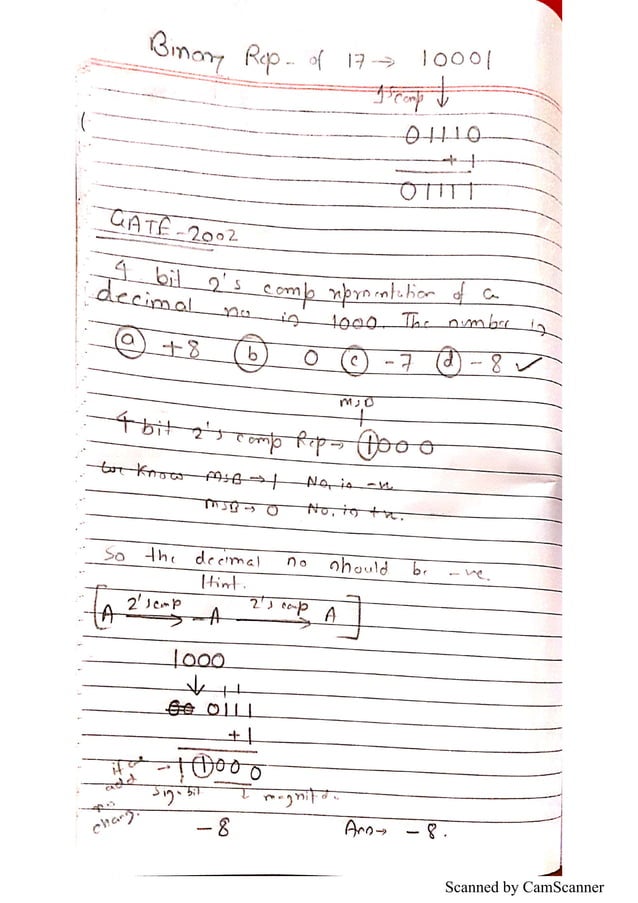 Binary Rep- of 17 → 10001
1's comp ↓
01110
+ 1
01111
GATE-2002
4 bit 2's comp reprnentation of a
decimal no is 1000. The number is
(a) +8 (b) 0 (c) -7 (d) -8 ✓
MSB
4 bit 2's comp Rep → 1000
We Know MSB → 1 No. is -ve
MSB → 0 No. is +ve.
So the decimal no should be -ve.
Hint.
[A 2's comp → -A 2's comp → A]
1000
↓ 1 1
0111
+1
if we add → 1 1000
sign bit magnitude
no chang.
-8 Ans → -8.
Scanned by CamScanner